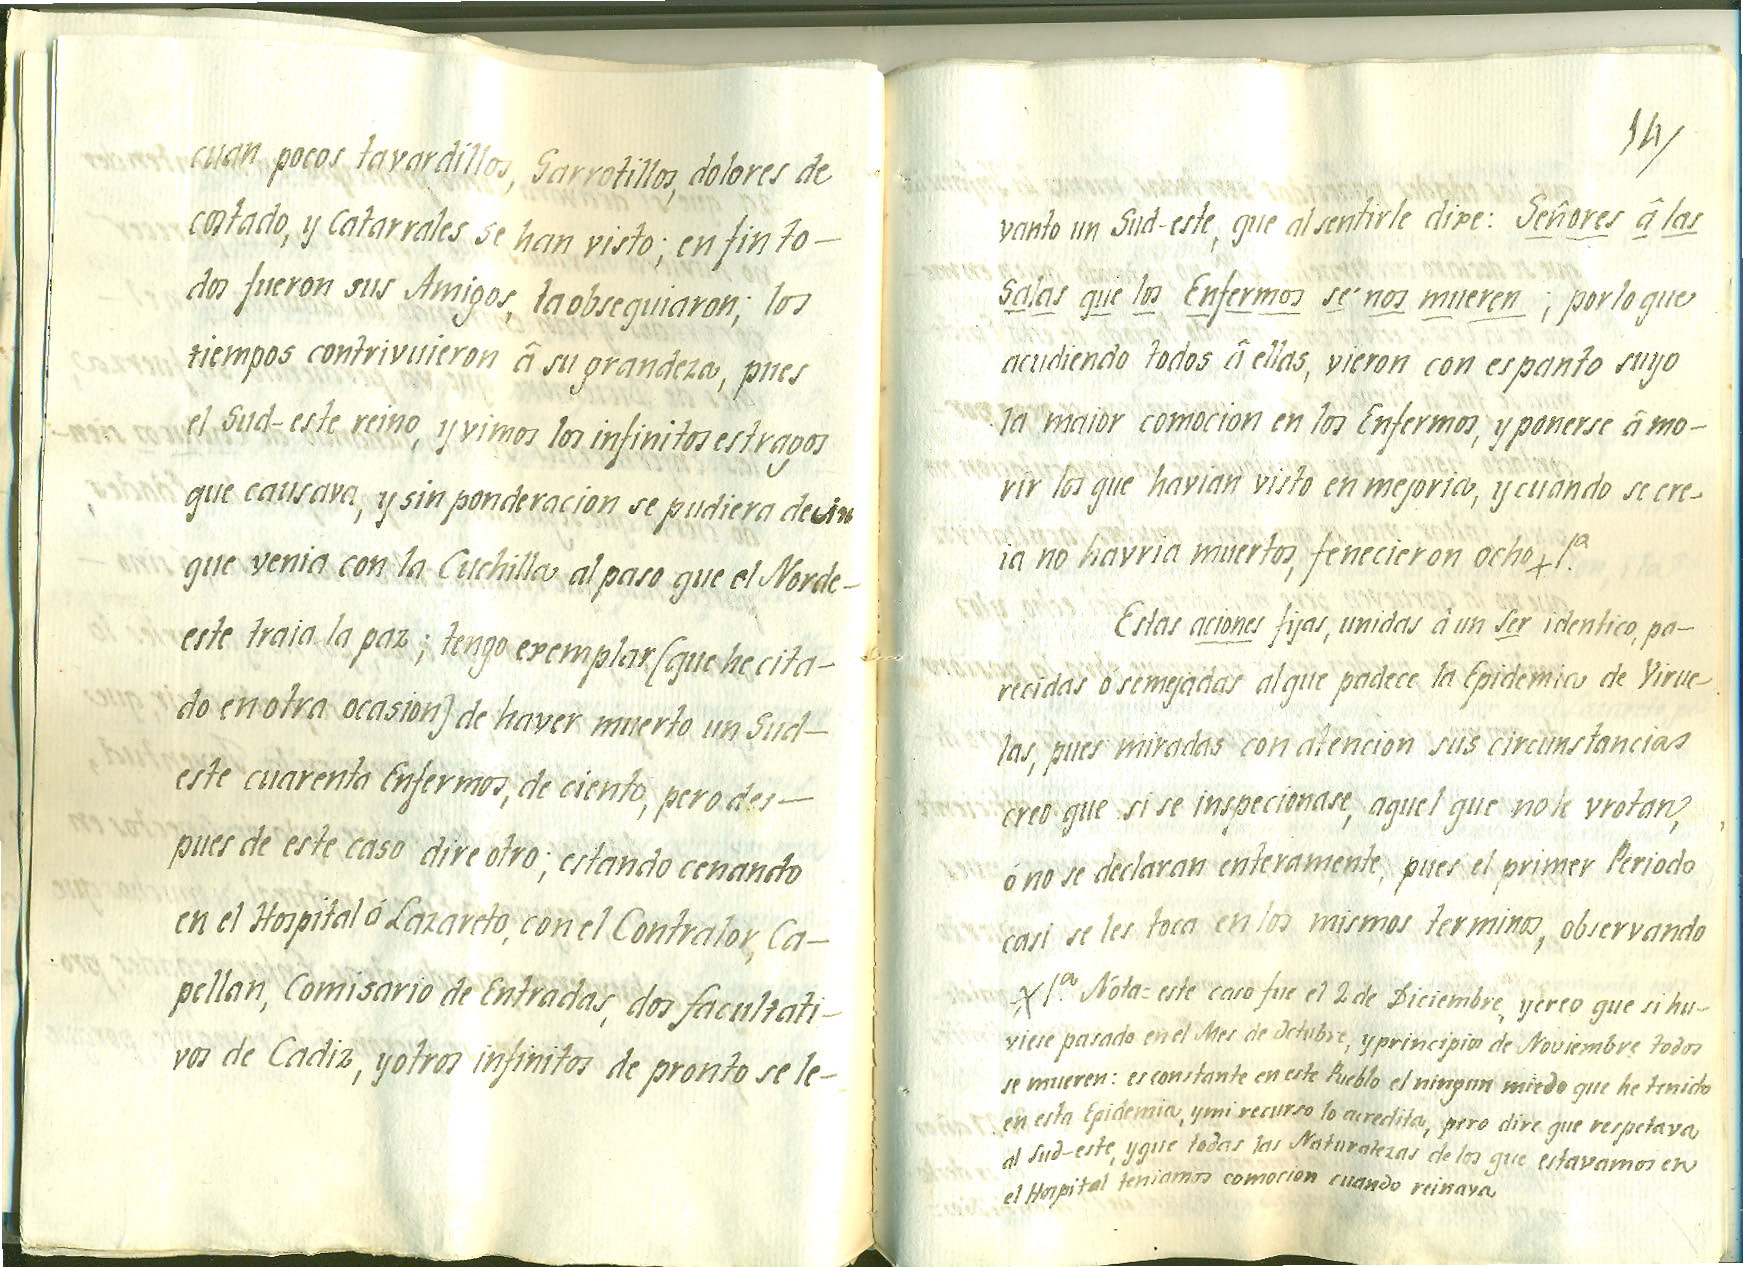 cuan pocos tavardillos, Garrotillos, dolores de
costado, y Catarrales se han visto; en fin to-
dos fueron sus Amigos, la obsequiaron; los
tiempos contrivuieron â su grandeza, pues
el Sud-este reino, y vimos los infinitos estragos
que causava, y sin ponderacion se pudiera decir
que venia con la Cuchilla al paso que el Norde-
este traia la paz; tengo exemplar (que he cita-
do en otra ocasion) de haver muerto un Sud-
este cuarenta Enfermos, de ciento, pero des-
pues de este caso dire otro; estando cenando
en el Hospital ó Lazareto, con el Contralor, Ca-
pellan, Comisario de Entradas, dos facultati-
vos de Cadiz, y otros infinitos de pronto se le-
14/
vanto un Sud-este, que al sentirle dixe: Señores â las
Salas que los Enfermos se nos mueren; por lo que
acudiendo todos â ellas, vieron con espanto suyo
la maior comocion en los Enfermos, y ponerse â mo-
rir los que havian visto en mejoria, y cuando se cre-
ia no havria muertos, fenecieron ocho x 1.ª
Estas aciones fijas, unidas à un Ser identico, pa-
recidas ó semejadas al que padece la Epidemia de Virue-
las, pues miradas con atencion sus circunstancias
creo que si se inspecionase, aquel que no le vrotan,
ó no se declaran enteramente, pues el primer Periodo
casi se les toca en los mismos terminos, observando
x 1.ª Nota= este caso fue el 2 de Diciembre, y creo que si hu-
viese pasado en el Mes de Octubre, y principios de Noviembre todos
se mueren: es constante en este Pueblo el ningun miedo que he tenido
en esta Epidemia, y mi recurso lo acredita, pero dire que respetava
al Sud-este, y que todas las Naturalezas de los que estavamos en
el Hospital teniamos comocion cuando reinava